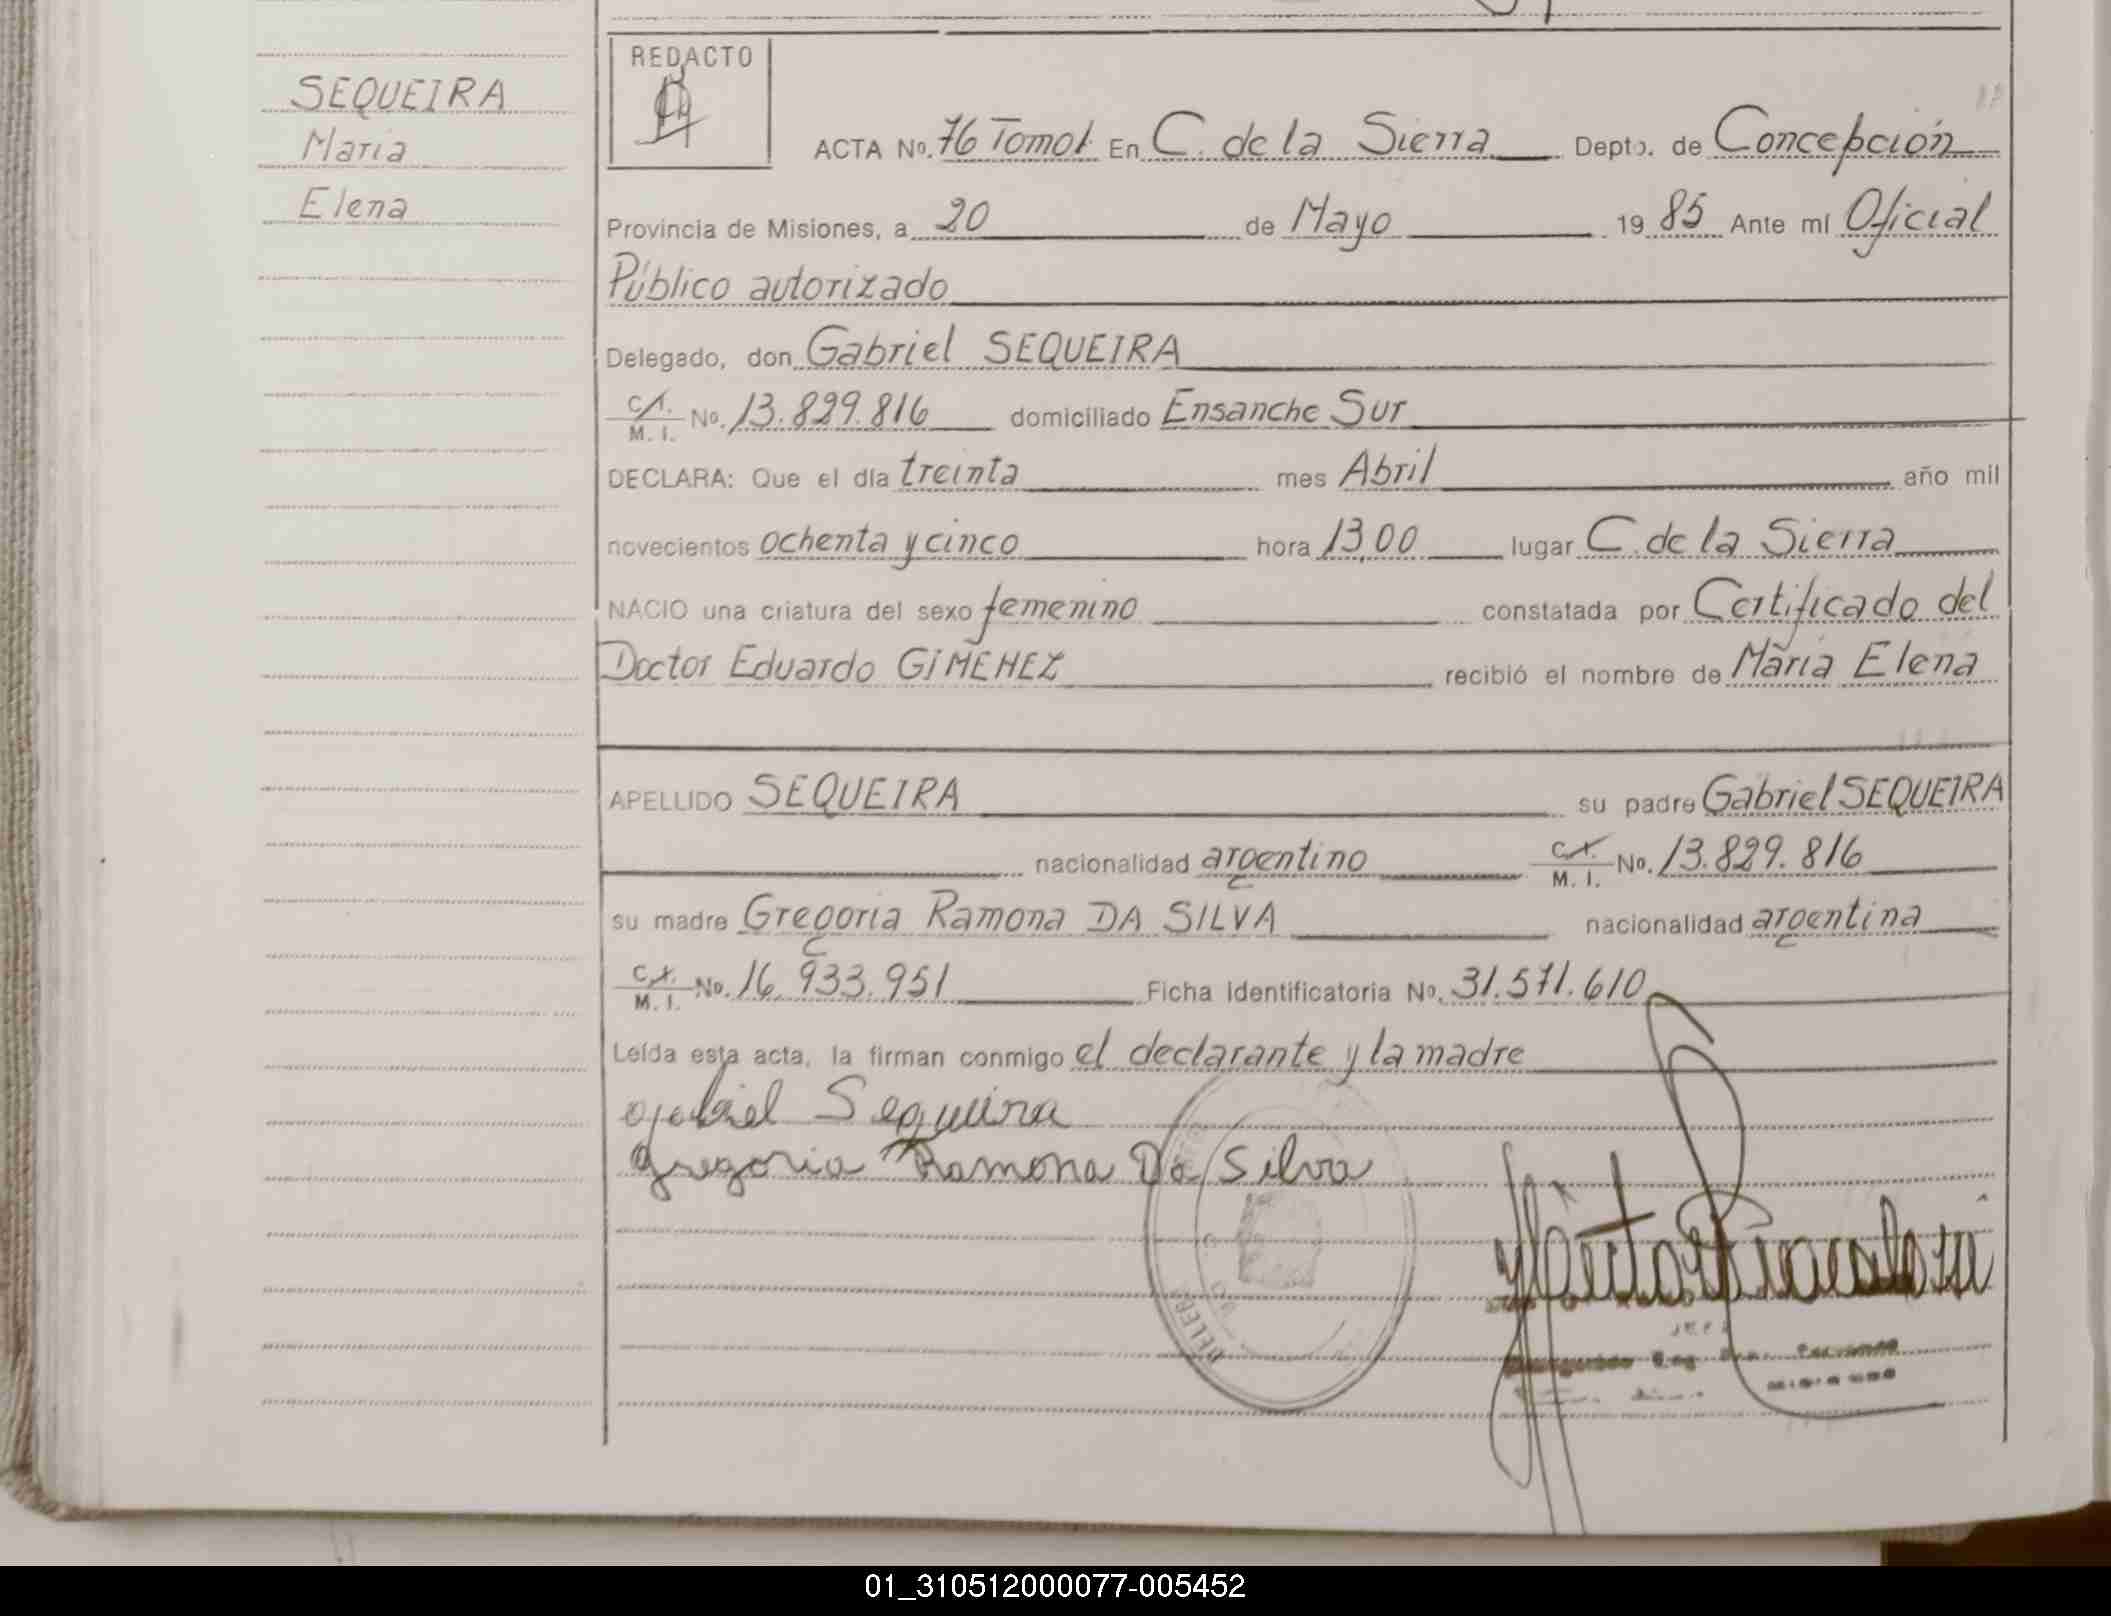 SEQUEIRA
Maria
Elena
REDACTO
ACTA No. 76 Tomo 1 En C. de la Sierra Depto. de Concepción
Provincia de Misiones, a 20 de Mayo 19 85 Ante mí Oficial
Público autorizado
Delegado, don Gabriel SEQUEIRA
C.I.
M. I. No. 13.829.816 domiciliado Ensanche Sur
DECLARA: Que el día treinta mes Abril año mil
novecientos ochenta y cinco hora 13,00 lugar C. de la Sierra
NACIO una criatura del sexo femenino constatada por Certificado del
Doctor Eduardo GIMENEZ recibió el nombre de María Elena
APELLIDO SEQUEIRA su padre Gabriel SEQUEIRA
nacionalidad argentino C.I. M. I. No. 13.829.816
su madre Gregoria Ramona DA SILVA nacionalidad argentina
C.I. M. I. No. 16.933.951 Ficha identificatoria No. 31.571.610
Leída esta acta, la firman conmigo el declarante y la madre
Gabriel Sequeira
Gregoria Ramona Da Silva
01_310512000077-005452